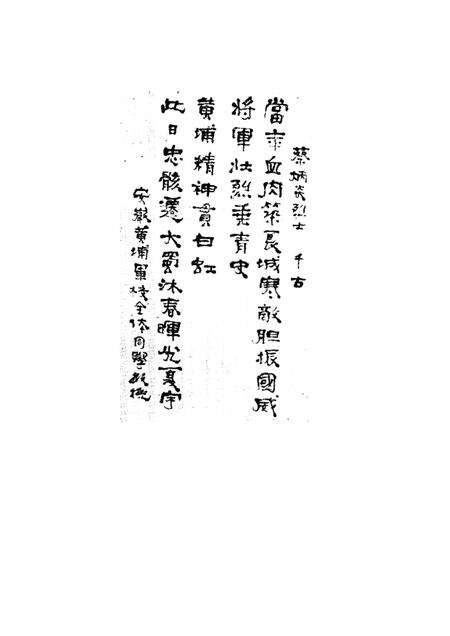 蔡炳炎烈士 千古
當年血肉築長城寒敵胆振國威
將軍壯烈垂青史
黄埔精神貫白虹
此日忠骸遷大蜀沐春暉光夏宇
安徽黄埔軍校全体同學敬挽